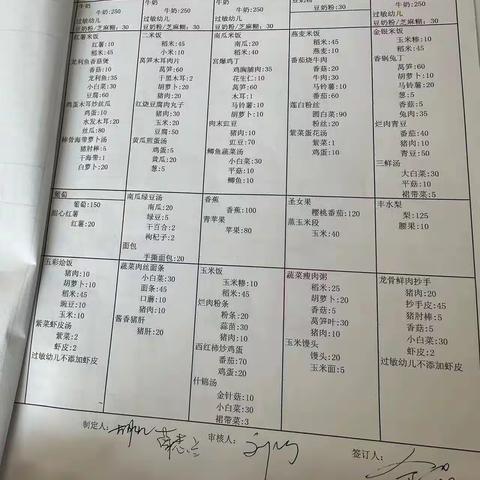 牛奶
牛奶:250
过敏幼儿
豆奶粉/芝麻糊:30
红薯米饭
红薯:10
稻米:45
龙利鱼香菇煲
香菇:10
龙利鱼:35
小白菜:30
豆腐:60
鸡蛋木耳炒丝瓜
鸡蛋:10
水发木耳:20
丝瓜:80
棒骨海带萝卜汤
猪肘棒:5
干海带:1
白萝卜:20
葡萄
葡萄:150
甜心红薯
红薯:20
五彩烩饭
猪肉:10
胡萝卜:10
稻米:45
豌豆:10
玉米:10
紫菜虾皮汤
紫菜:2
虾皮:2
过敏幼儿不添加虾皮
牛奶
牛奶:250
过敏幼儿
豆奶粉/芝麻糊:30
二米饭
稻米:45
小米:10
莴笋木耳肉片
莴笋:60
干黑木耳:2
胡萝卜:20
猪肉:20
红烧豆腐肉丸子
猪肉:30
玉米:20
豆腐:50
黄瓜煎蛋汤
鸡蛋:5
黄瓜:20
葱:5
南瓜绿豆汤
南瓜:20
绿豆:5
干百合:2
枸杞子:2
面包
手撕面包:20
蔬菜肉丝面条
小白菜:30
面条:45
口蘑:10
猪肉:10
酱香猪肝
猪肝:20
牛奶:250
过敏幼儿
豆奶粉/芝麻糊:30
南瓜米饭
南瓜:20
稻米:40
宫爆鸡丁
鸡胸脯肉:35
花生仁:10
莴笋:60
木耳:1
马铃薯:10
胡萝卜:10
肉末豇豆
猪肉:10
豇豆:70
鲫鱼蔬菜汤
小白菜:30
平菇:10
鲫鱼:10
香蕉
香蕉:100
青苹果
苹果:80
玉米饭
玉米糁:10
稻米:45
烂肉粉条
粉条:20
蒜苗:30
猪肉:10
西红柿炒鸡蛋
番茄:70
鸡蛋:20
什锦汤
金针菇:10
小白菜:30
裙带菜:3
豆奶粉:30
燕麦米饭
稻米:45
燕麦:10
番茄烧牛肉
香菇:20
牛肉:30
马铃薯:10
番茄:60
莲白粉丝
圆白菜:90
粉丝:20
紫菜蛋花汤
紫菜:1
鸡蛋:10
圣女果
樱桃番茄:120
蒸玉米段
玉米:40
蔬菜瘦肉粥
稻米:25
胡萝卜:20
香菇:5
莴笋叶:30
猪肉:10
玉米馒头
馒头:20
玉米面:5
牛奶:250
过敏幼儿
豆奶粉/芝麻糊:30
金银米饭
玉米糁:10
稻米:45
香锅兔丁
莴笋:60
胡萝卜:10
马铃薯:10
葱:5
香菇:5
兔肉:35
烂肉青豆
番茄:40
猪肉:10
青豆:50
三鲜汤
大白菜:30
平菇:10
裙带菜:5
丰水梨
梨:125
腰果
腰果:10
龙骨鲜肉抄手
猪肉:20
抄手皮:45
猪肘棒:5
香菇:5
小白菜:30
虾皮:2
过敏幼儿不添加虾皮
制定人:
审核人:
签订人: